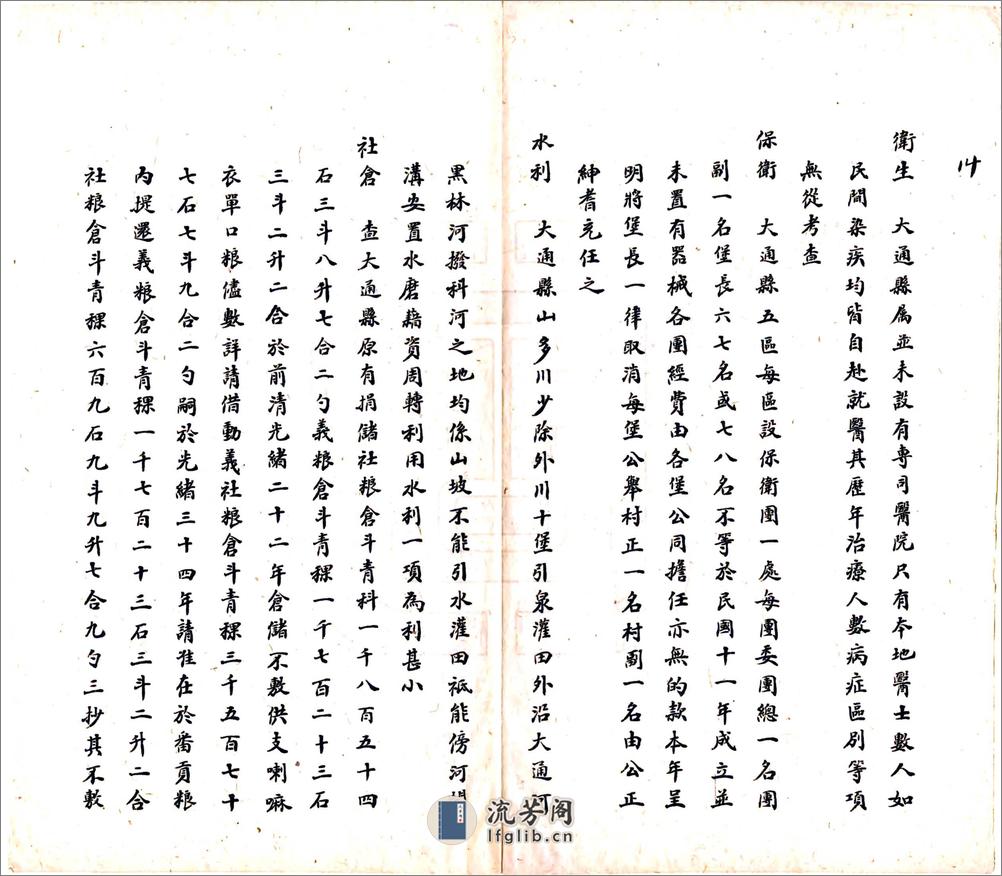 14
衛生　大通縣属並未設有專司醫院只有本地醫士數人如
民間染疾均皆自赴就醫其歷年治療人數病症區別等項
無從考查
保衛　大通縣五區每區設保衛團一處每團委團總一名團
副一名堡長六七名或七八名不等於民國十一年成立並
未置有器械各團經費由各堡公同擔任亦無的款本年呈
明將堡長一律取消每堡公舉村正一名村副一名由公正
紳耆充任之
水利　大通縣山多川少除外川十堡引泉灌田外沿大通河
黑林河撥科河之地均係山坡不能引水灌田祇能傍河
溝安置水磨藉資周轉利用水利一項為利甚小
社倉　查大通縣原有捐儲社粮倉斗青科一千八百五十四
石三斗八升七合二勺義粮倉斗青稞一千七百二十三石
三斗二升二合於前清光緒二十二年倉儲不敷供支喇嘛
衣單口粮儘數詳請借動義社粮倉斗青稞三千五百七十
七石七斗九合二勺嗣於光緒三十四年請准在於番貢粮
內提還義粮倉斗青稞一千七百二十三石三斗二升二合
社粮倉斗青稞六百九石九斗九升七合九勺三抄其不敷
流芳阁
lfglib.cn